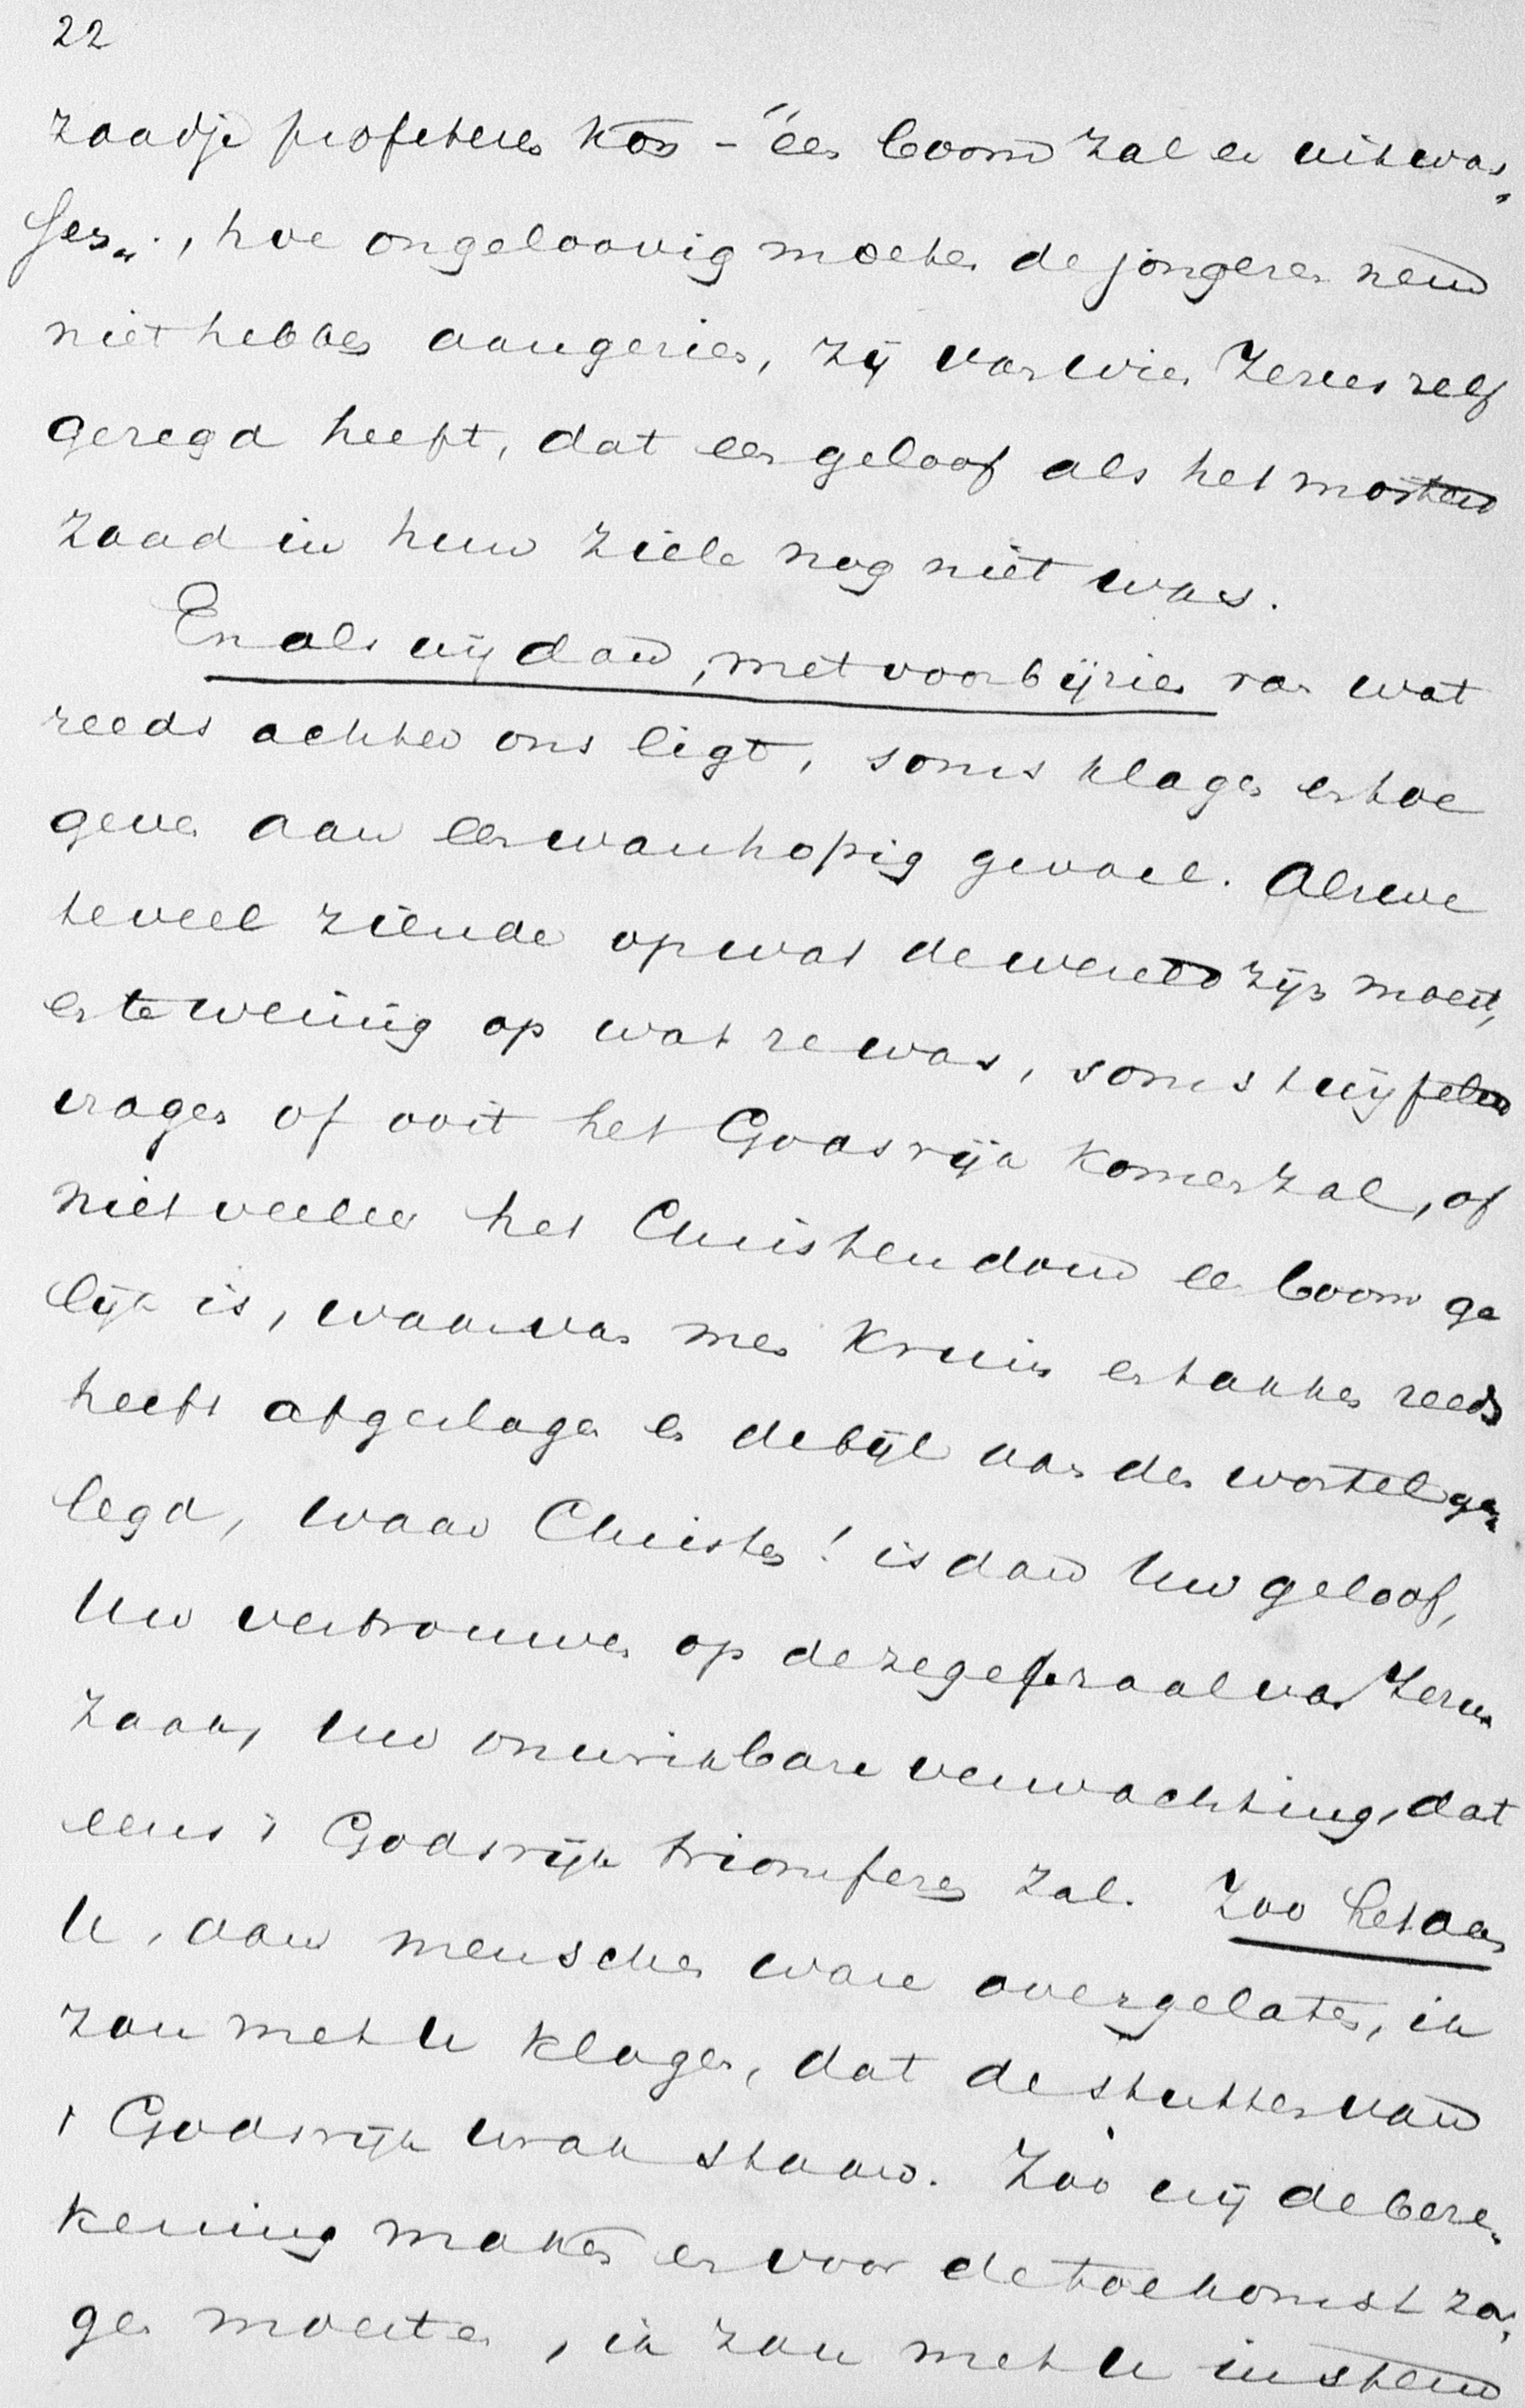 22
zaadje profeteren kon – "een boom zal er uitwas-
sen", hoe ongeloovig moeten de jongeren hem
niet hebben aangezien, zij van wien Jezus zelf
gezegd heeft, dat een geloof als het mosterd
zaad in hun ziele nog niet was.
En als wij dan, met voorbijzien van wat
reeds achter ons ligt, soms klagen en toe
geven aan een wanhopig gevoel. Als we
te veel ziende op wat de wereld zijn moest,
en te weinig op wat ze was, soms twijfelend
vragen of ooit het Godsrijk komen zal, of
niet veeleer het Christendom een boom ge
lijk is, waarvan men kruin en takken reeds
heeft afgeslagen en de bijl aan den wortel ge-
legd, waar Christen! is dan Uw geloof,
Uw vertrouwen op de zegepraal van Jezus
zaak, Uw onwrikbare verwachting, dat
eens 't Godsrijk triomferen zal. Zoo het aan
U, aan menschen ware overgelaten, ik
zou met U klagen, dat de stutten van
't Godsrijk wrak staan. Zoo wij de bere-
kening maken en voor de toekomst zor-
gen moesten, ik zou met U instem